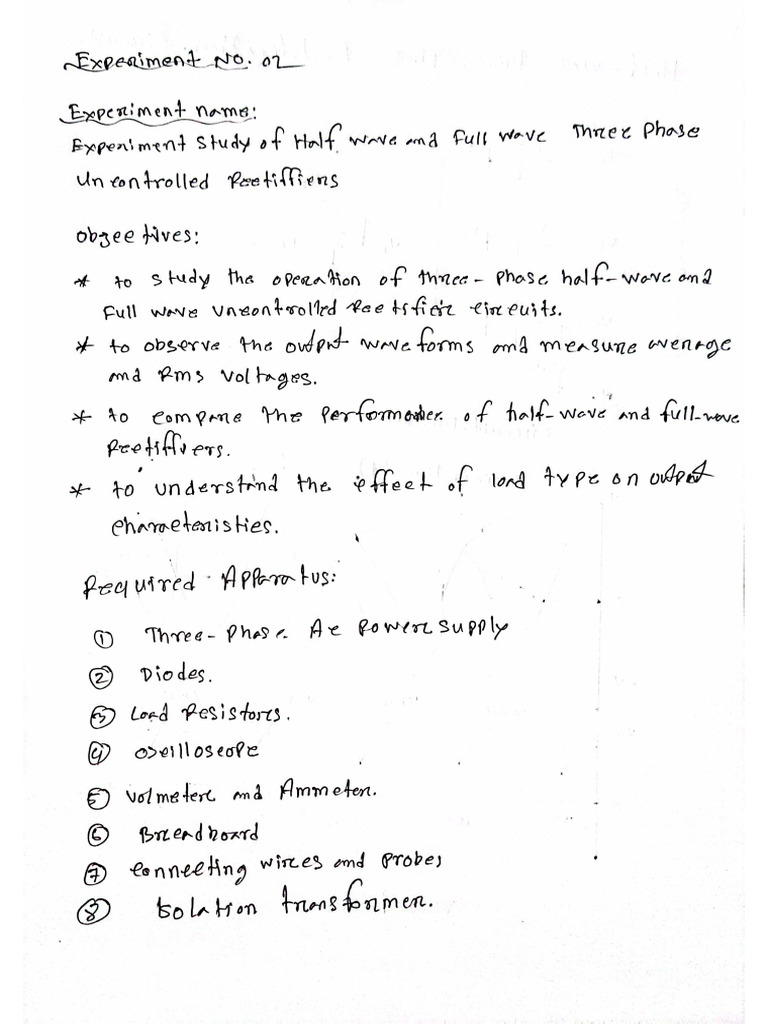 Experiment No. 02
Experiment name:
Experiment Study of Half Wave and Full Wave Three Phase
Uncontrolled Rectifiers
Objectives:
* to study the operation of three-phase half-wave and
Full wave uncontrolled Rectifier circuits.
* to observe the output waveforms and measure average
and Rms voltages.
* to compare the of half-wave and full-wave
Rectifiers.
* to understand the effect of load type on output
characteristics.
Required Apparatus:
① Three-Phase Ac Power Supply
② Diodes.
③ Load Resistors.
④ Oscilloscope
⑤ Volmeter and Ammeter.
⑥ Breadboard
⑦ connecting wires and probes
⑧ Isolation transformer.